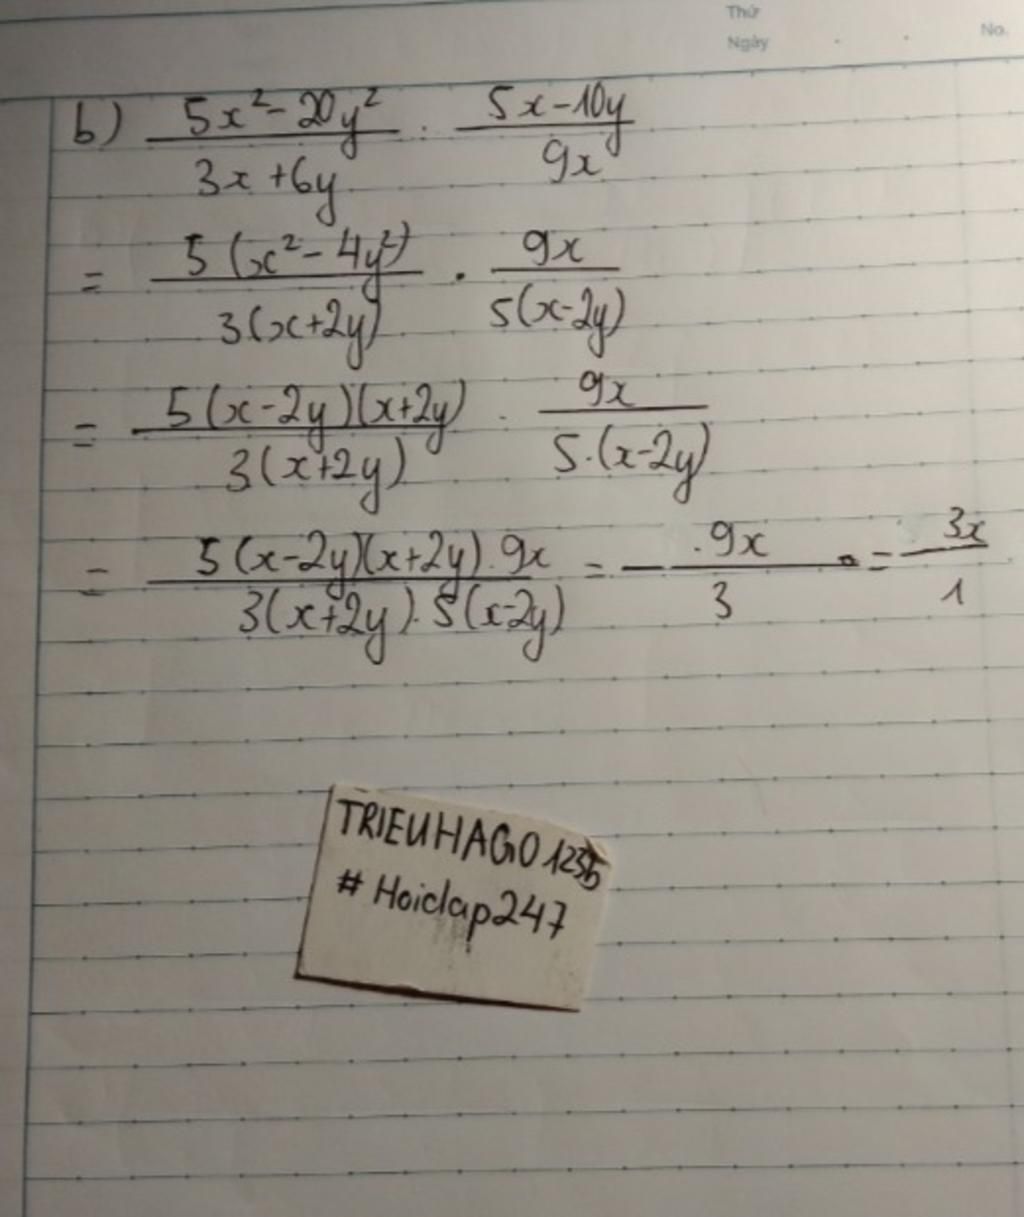 Thứ
Ngày . . No.
b) \frac{5x^2-20y^2}{3x+6y} : \frac{5x-10y}{9x}
= \frac{5(x^2-4y^2)}{3(x+2y)} . \frac{9x}{5(x-2y)}
= \frac{5(x-2y)(x+2y)}{3(x+2y)} . \frac{9x}{5.(x-2y)}
= \frac{5(x-2y)(x+2y).9x}{3(x+2y).5(x-2y)} = \frac{9x}{3} = \frac{3x}{1}
TRIEUHAGO1235
# Hoidap247